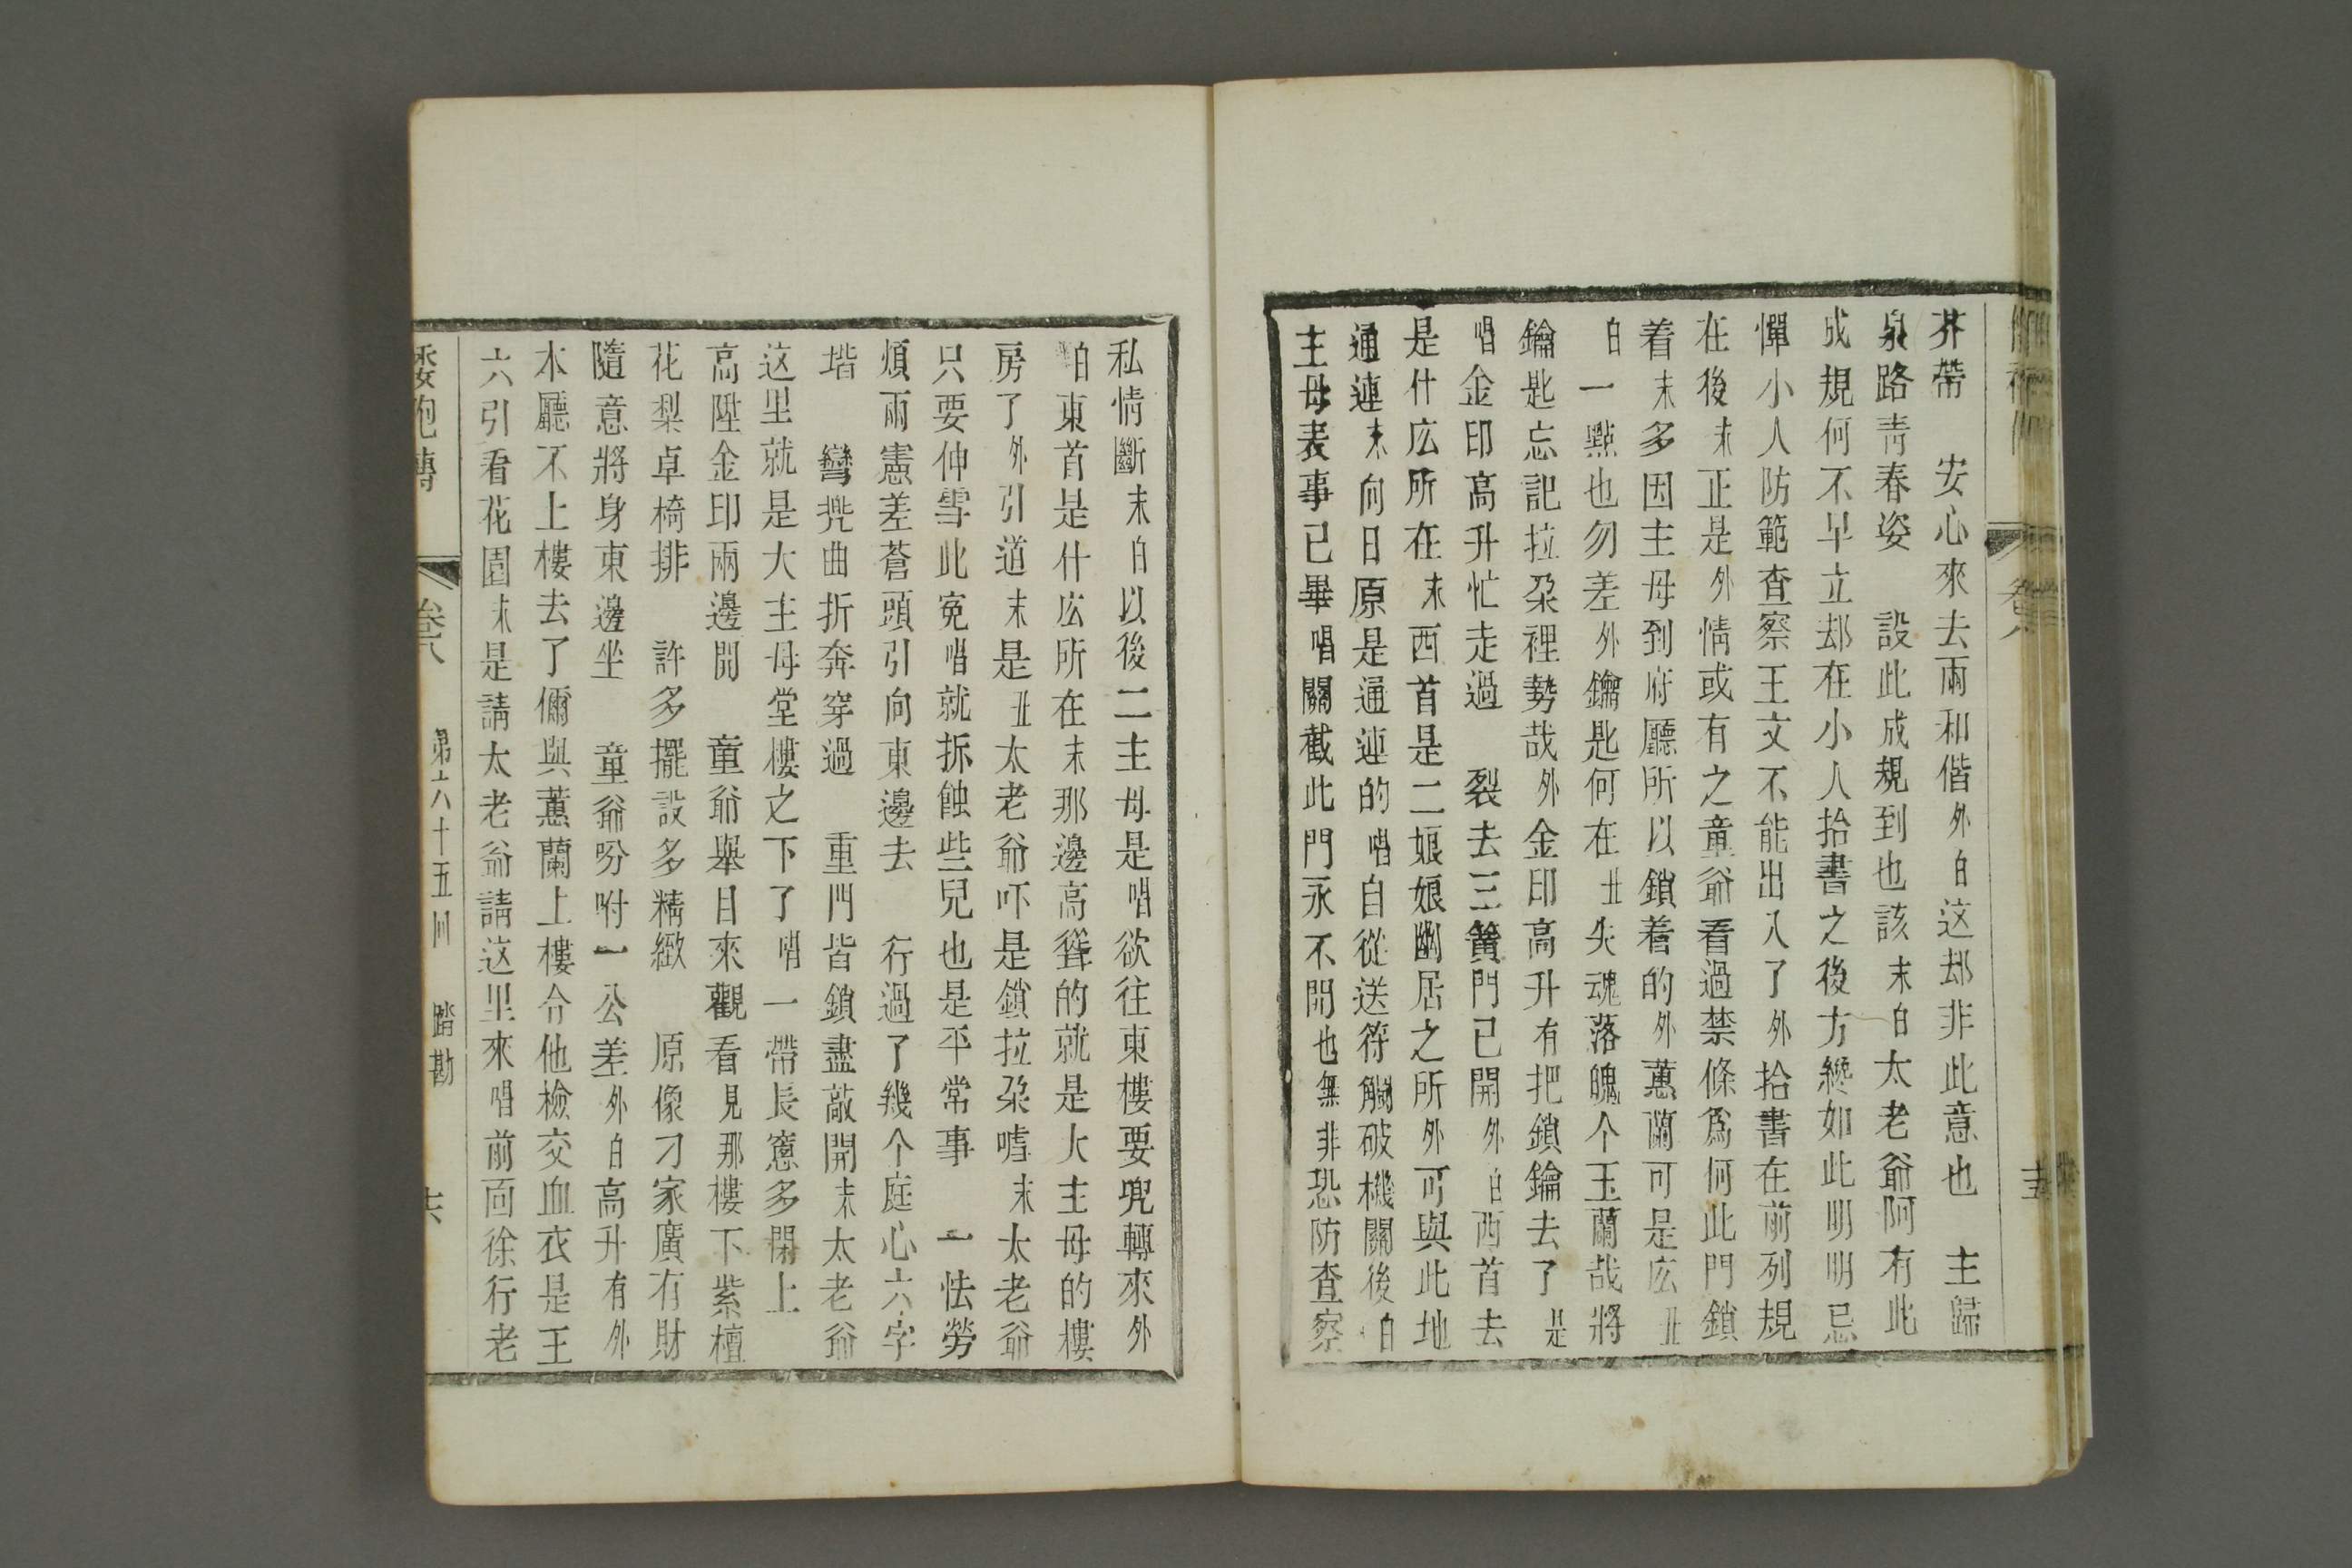 芥帶　安心來去兩和偕外白这却非此意也　主歸
泉路靑春姿　設此成規到也該末白太老爺阿有此
成規何不早立却在小人拾書之後方纔如此明明忌
憚小人防範查察王文不能出入了外拾書在前列規
在後末正是外情或有之童爺看過禁條爲何此門鎖
着末多因主母到府廳所以鎖着的外蕙蘭可是庅丑
白一點也勿差外鑰匙何在丑失魂落魄个玉蘭哉將
鑰匙忘記拉朶裡勢哉外金印高升有把鎖鑰去了是
唱金印高升忙走過　裂去三簧門已開外白西首去
是什庅所在末西首是二娘娘幽居之所外可與此地
通連末向日原是通連的唱自從送符觸破機關後白
主母表事已畢唱關截此門永不開也無非恐防查察
私情斷末白以後二主母是唱欲往東樓要兜轉來外
白東首是什庅所在末那邊高聳的就是大主母的樓
房了外引道末是丑太老爺吓是鎖拉朶嘘末太老爺
只要伸雪此寃唱就拆蝕些兒也是平常事　一怯勞
煩兩憲差蒼頭引向東邊去　行過了幾个庭心六字
堦　彎兠曲折奔穿過　重門皆鎖盡敲開末太老爺
这里就是大主母堂樓之下了唱一帶長窻多閉上
高陞金印兩邊開　童爺舉目來觀看見那樓下紫檀
花梨卓椅排　許多擺設多精緻　原像刁家廣有財
隨意將身東邊坐　童爺吩咐一公差外白高升有外
本廳不上樓去了儞與蕙蘭上樓令他檢交血衣是王
六引看花園末是請太老爺請这里來唱前面徐行老
卷八　第六十五回　踏勘